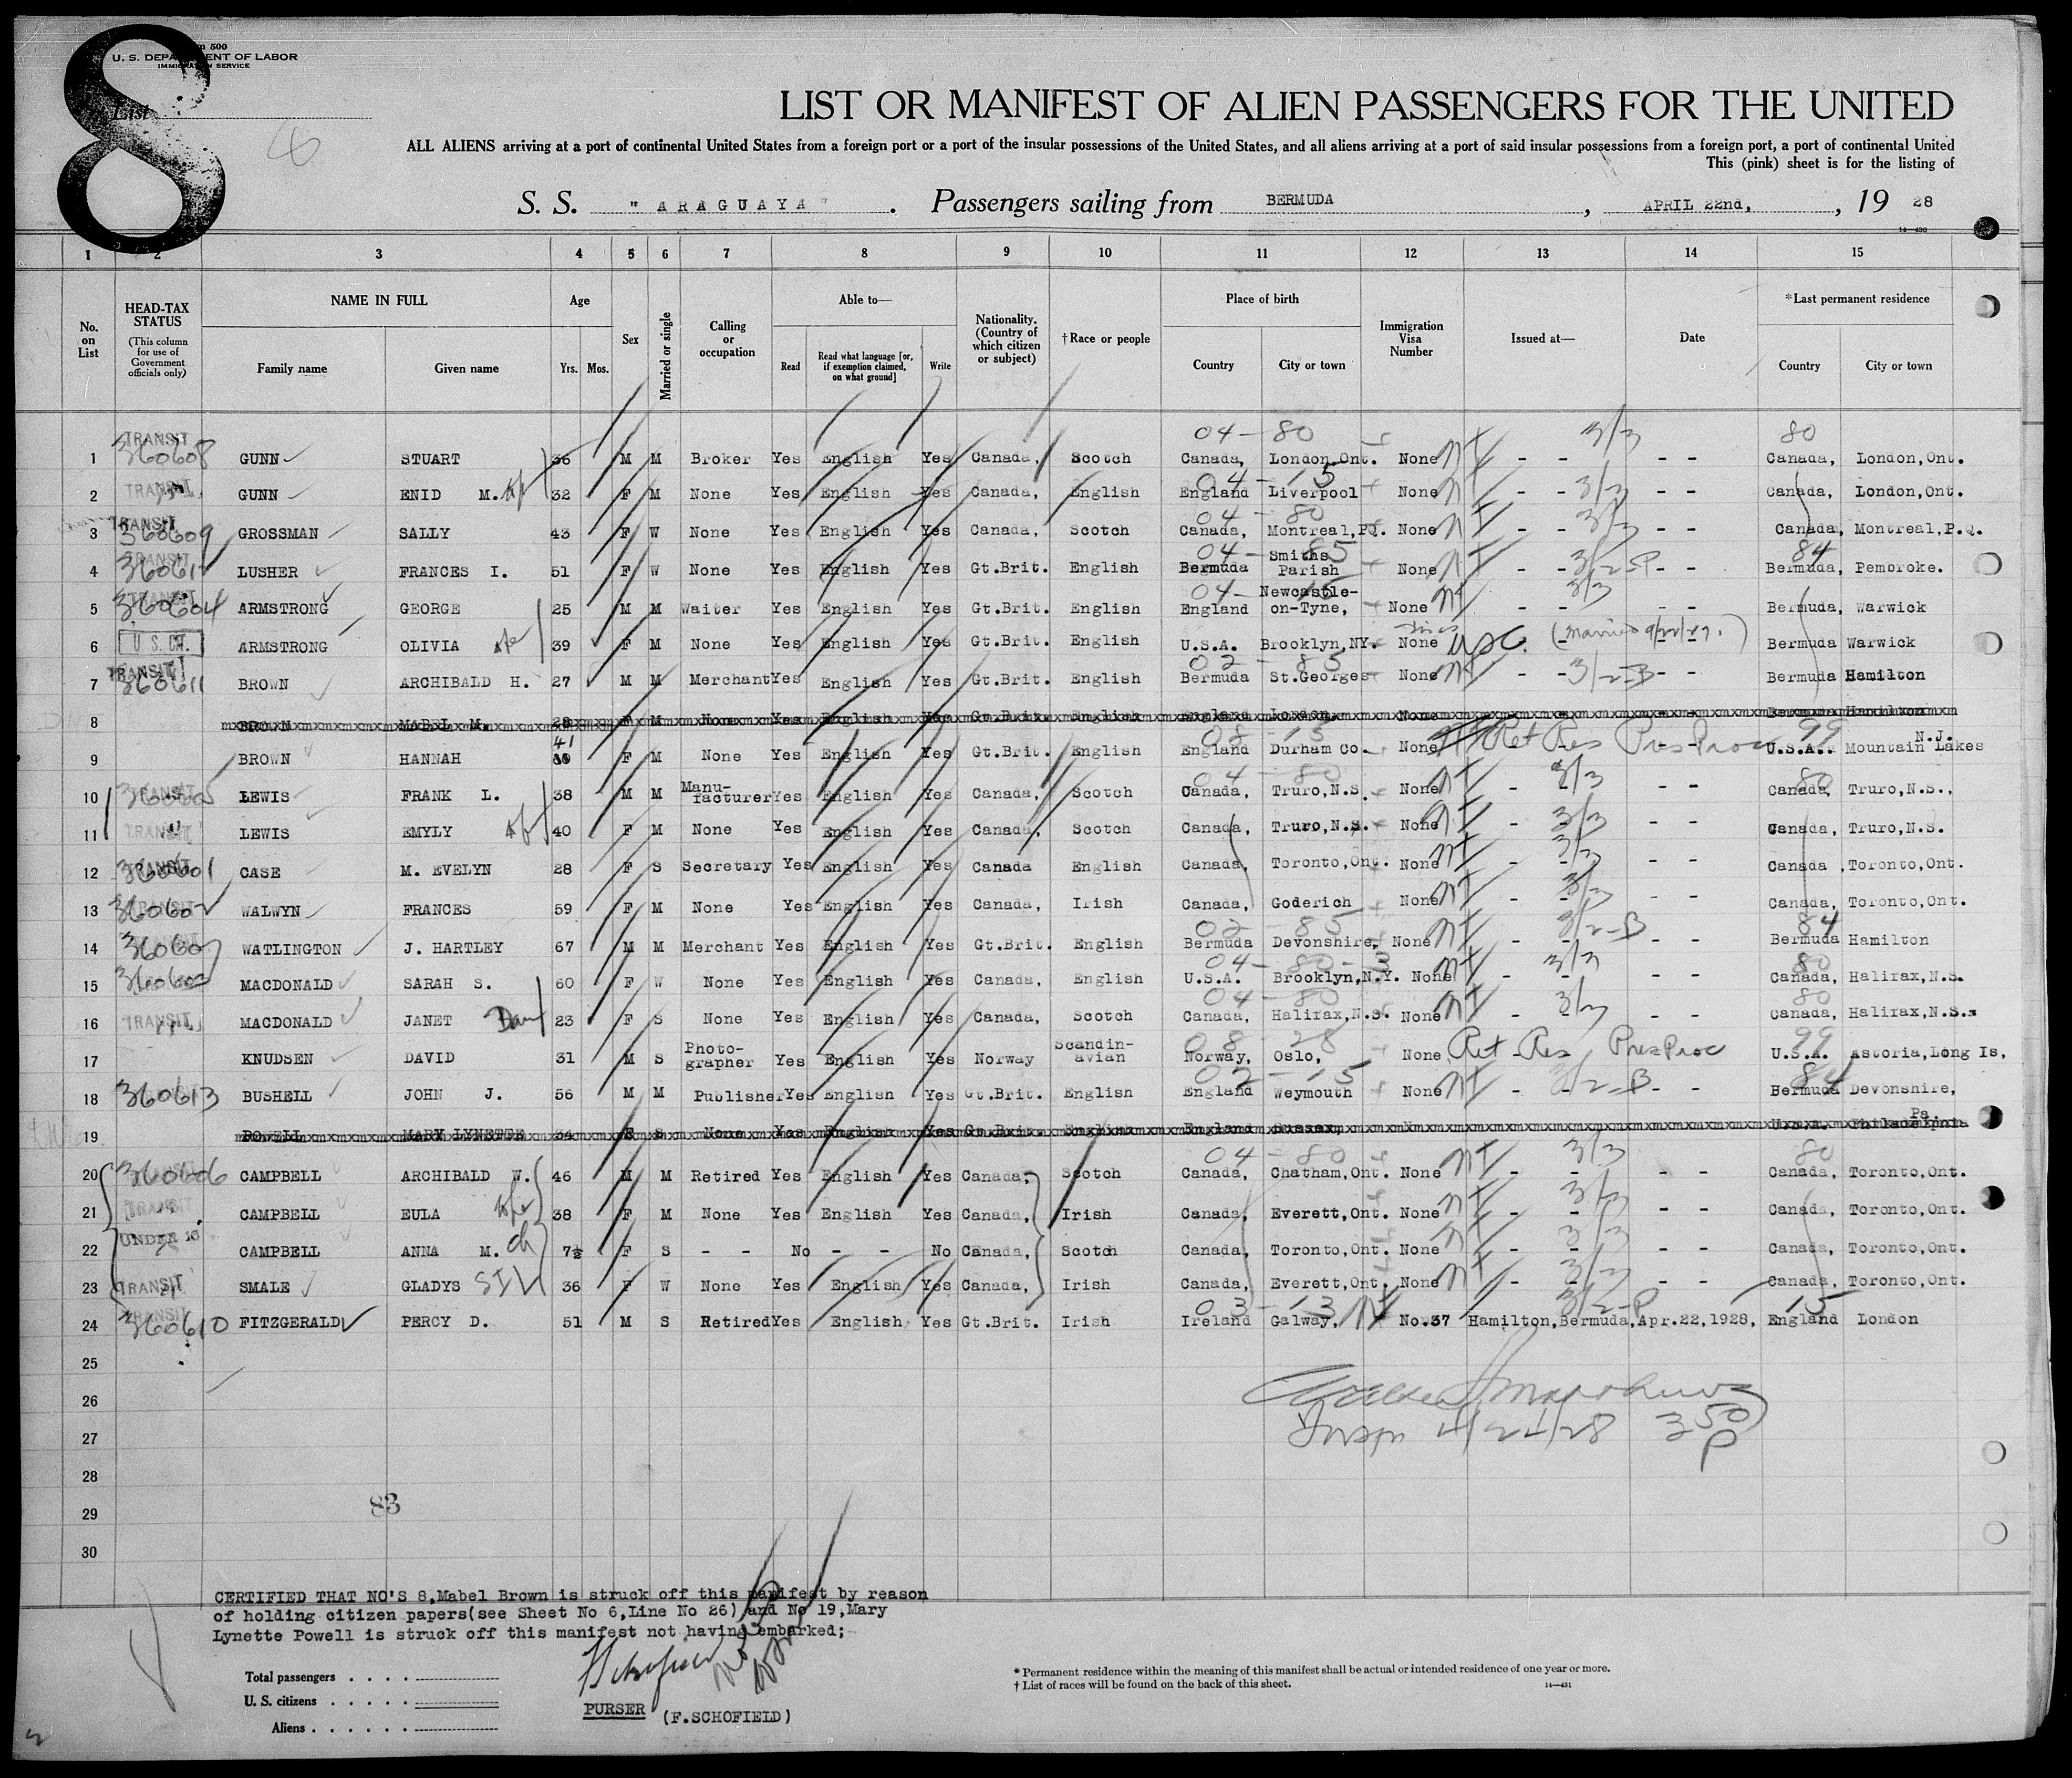 8
Form 500
U. S. DEPARTMENT OF LABOR
IMMIGRATION SERVICE
List
LIST OR MANIFEST OF ALIEN PASSENGERS FOR THE UNITED
ALL ALIENS arriving at a port of continental United States from a foreign port or a port of the insular possessions of the United States, and all aliens arriving at a port of said insular possessions from a foreign port, a port of continental United
This (pink) sheet is for the listing of
S. S. "ARAGUAYA". Passengers sailing from BERMUDA, APRIL 22nd, , 19 28
14—430
1 2 3 4 5 6 7 8 9 10 11 12 13 14 15
No. on List
HEAD-TAX STATUS
(This column for use of Government officials only)
NAME IN FULL
Family name Given name
Age
Yrs. Mos.
Sex
Married or single
Calling or occupation
Able to—
Read
Read what language [or, if exemption claimed, on what ground]
Write
Nationality. (Country of which citizen or subject)
†Race or people
Place of birth
Country City or town
Immigration Visa Number
Issued at—
Date
*Last permanent residence
Country City or town
04 - 80 3/3 80
1 TRANSIT 360608 GUNN STUART 36 M M Broker Yes English Yes Canada, Scotch Canada, London,Ont. None - - - - Canada, London,Ont.
04 - 15
2 TRANSIT GUNN ENID M. 32 F M None Yes English Yes Canada, English England Liverpool None - - 3/3 - - Canada, London,Ont.
04 - 80
3 TRANSIT 360609 GROSSMAN SALLY 43 F W None Yes English Yes Canada, Scotch Canada, Montreal,PQ. None - - 3/3 - - Canada, Montreal,P.Q.
04 - 85 84
4 TRANSIT LUSHER FRANCES I. 51 F W None Yes English Yes Gt.Brit. English Bermuda Smiths Parish None - - - - Bermuda, Pembroke.
04 - 15 3/3
5 TRANSIT 360604 ARMSTRONG GEORGE 25 M M Waiter Yes English Yes Gt.Brit. English England Newcastle-on-Tyne, None - - - - Bermuda, Warwick
6 U S. CIT. ARMSTRONG OLIVIA 39 F M None Yes English Yes Gt.Brit. English U.S.A. Brooklyn,NY. None USC. (Married 9/22/27.) Bermuda Warwick
02 - 85
7 TRANSIT 360611 BROWN ARCHIBALD H. 27 M M Merchant Yes English Yes Gt.Brit. English Bermuda St.Georges None - - 3/2-B - - Bermuda Hamilton
8 BROWN MABEL M. 28 F M None Yes English Yes Gt.Brit. English England London None - - Bermuda Hamilton
08 - 15 99
9 BROWN HANNAH 41 F M None Yes English Yes Gt.Brit. English England Durham Co. None Ret Res Pres Proc U.S.A.. Mountain Lakes N.J.
04 - 80 3/3 80
10 TRANSIT 360605 LEWIS FRANK L. 38 M M Manufacturer Yes English Yes Canada, Scotch Canada, Truro,N.S. None - - - - Canada, Truro,N.S.,
11 TRANSIT LEWIS EMYLY 40 F M None Yes English Yes Canada, Scotch Canada, Truro,N.S. None - - 3/3 - - Canada, Truro,N.S.
12 TRANSIT 360601 CASE M. EVELYN 28 F S Secretary Yes English Yes Canada English Canada, Toronto,Ont. None - - 3/3 - - Canada , Toronto,Ont.
13 TRANSIT 360602 WALWYN FRANCES 59 F M None Yes English Yes Canada, Irish Canada, Goderich None - - 3/3 - - Canada, Toronto,Ont.
02 - 85 3/2-B 84
14 360607 WATLINGTON J. HARTLEY 67 M M Merchant Yes English Yes Gt.Brit. English Bermuda Devonshire, None - - - - Bermuda Hamilton
04 - 80 - 3 3/3 80
15 360603 MACDONALD SARAH S. 60 F W None Yes English Yes Canada, English U.S.A. Brooklyn,N.Y. None - - - - Canada, Halifax,N.S.
04 - 80 80
16 TRANSIT MACDONALD JANET Dau 23 F S None Yes English Yes Canada, Scotch Canada, Halifax,N.S. None - - 3/3 - - Canada, Halifax,N.S.
08 - 28 99
17 KNUDSEN DAVID 31 M S Photo-grapher Yes English Yes Norway Scandin-avian Norway, Oslo, None Ret Res Pres Proc U.S.A. Astoria,Long Is,
02 - 15 84
18 360613 BUSHELL JOHN J. 56 M M Publisher Yes English Yes Gt.Brit. English England Weymouth None - 3/2-B - - Bermuda Devonshire,
19 POWELL MARY LYNETTE 34 F S None Yes English Yes Gt.Brit. English England Sussex, U.S.A. Philadelphia Pa.
04 - 80 3/3 80
20 360606 CAMPBELL ARCHIBALD W. 46 M M Retired Yes English Yes Canada, Scotch Canada, Chatham,Ont. None - - - - Canada, Toronto,Ont.
21 TRANSIT CAMPBELL EULA 38 F M None Yes English Yes Canada, Irish Canada, Everett,Ont. None - - 3/3 - - Canada, Toronto,Ont.
22 UNDER 16 CAMPBELL ANNA M. ch 7½ F S - - No - - No Canada, Scotch Canada, Toronto,Ont. None - - 3/3 - - Canada, Toronto,Ont.
23 TRANSIT SMALE GLADYS SIL 36 F W None Yes English Yes Canada, Irish Canada, Everett,Ont. None - - 3/3 - - Canada, Toronto,Ont.
03 - 13 15
24 TRANSIT 360610 FITZGERALD PERCY D. 51 M S Retired Yes English Yes Gt.Brit. Irish Ireland Galway, No.37 Hamilton,Bermuda,Apr.22,1928, England London
25
26
27 Insp 4/24/28 3 50 P
28
29 83
30
CERTIFIED THAT NO'S 8,Mabel Brown is struck off this manifest by reason
of holding citizen papers(see Sheet No 6,Line No 26) and No 19,Mary
Lynette Powell is struck off this manifest not having embarked;
F Schofield
PURSER (F.SCHOFIELD)
Total passengers . . . .
U. S. citizens . . . . .
Aliens . . . . . .
* Permanent residence within the meaning of this manifest shall be actual or intended residence of one year or more.
† List of races will be found on the back of this sheet.
14—431